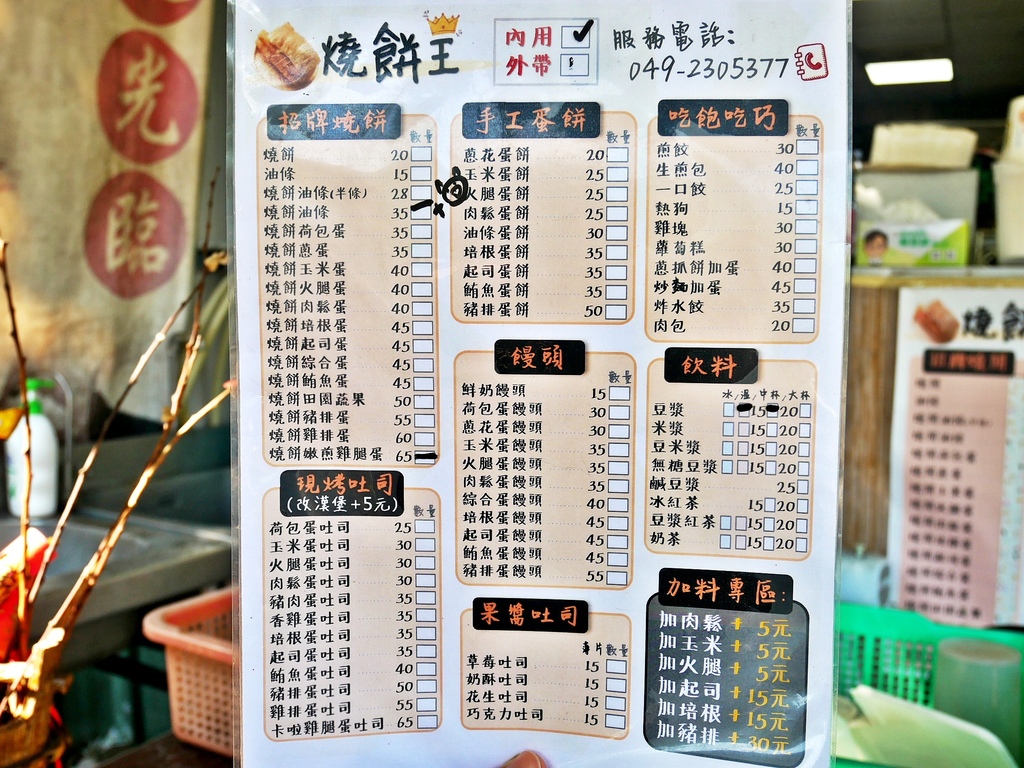 光
臨
燒餅王
內用
外帶
服務電話:
049-2305377
招牌燒餅
數量
燒餅 20
油條 15
燒餅油條(半條) 28
燒餅油條 35
燒餅荷包蛋 35
燒餅蔥蛋 35
燒餅玉米蛋 40
燒餅火腿蛋 40
燒餅肉鬆蛋 40
燒餅培根蛋 45
燒餅起司蛋 45
燒餅綜合蛋 45
燒餅鮪魚蛋 45
燒餅田園蔬果 50
燒餅豬排蛋 55
燒餅雞排蛋 60
燒餅嫩煎雞腿蛋 65
現烤吐司
(改漢堡+5元)
數量
荷包蛋吐司 25
玉米蛋吐司 30
火腿蛋吐司 30
肉鬆蛋吐司 30
豬肉蛋吐司 35
香雞蛋吐司 35
培根蛋吐司 35
起司蛋吐司 35
鮪魚蛋吐司 40
豬排蛋吐司 50
雞排蛋吐司 55
卡啦雞腿蛋吐司 65
手工蛋餅
數量
蔥花蛋餅 20
玉米蛋餅 25
火腿蛋餅 25
肉鬆蛋餅 25
油條蛋餅 30
培根蛋餅 35
起司蛋餅 35
鮪魚蛋餅 35
豬排蛋餅 50
饅頭
數量
鮮奶饅頭 15
荷包蛋饅頭 30
蔥花蛋饅頭 30
玉米蛋饅頭 35
火腿蛋饅頭 35
肉鬆蛋饅頭 35
綜合蛋饅頭 40
培根蛋饅頭 45
起司蛋饅頭 45
鮪魚蛋饅頭 45
豬排蛋饅頭 55
果醬吐司
單片數量
草莓吐司 15
奶酥吐司 15
花生吐司 15
巧克力吐司 15
吃飽吃巧
數量
煎餃 30
生煎包 40
一口餃 25
熱狗 15
雞塊 30
蘿蔔糕 30
蔥抓餅加蛋 40
炒麵加蛋 45
炸水餃 35
肉包 20
飲料
冰/溫/中杯/大杯
豆漿 15 20
米漿 15 20
豆米漿 15 20
無糖豆漿 15 20
鹹豆漿 25
冰紅茶 15 20
豆漿紅茶 15 20
奶茶 15 20
加料專區:
加肉鬆+5元
加玉米+5元
加火腿+5元
加起司+15元
加培根+15元
加豬排+30元
燒餅